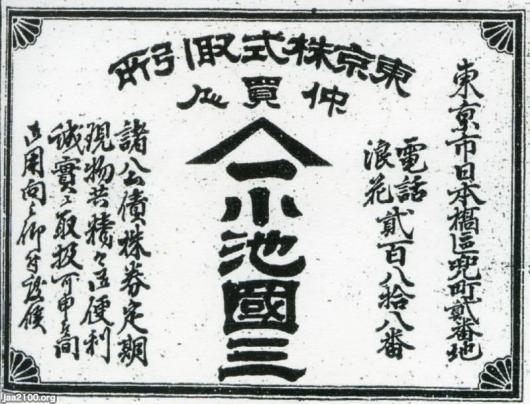 東京株式取引所
仲買人
東京市日本橋區兜町貳番地
電話
浪花貳百八拾八番
小池國三
諸公債株券定期
現物共精々御便利
誠實ニ取扱可申候間
御用向
jaa2100.org